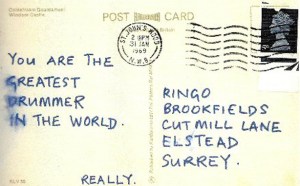 POST CARD
ST. JOHN'S WOOD
2-PM
31 JAN
1969
N.W.8
YOU ARE THE
GREATEST
DRUMMER
IN THE WORLD.
REALLY.
RINGO
BROOKFIELDS
CUT MILL LANE
ELSTEAD
SURREY.